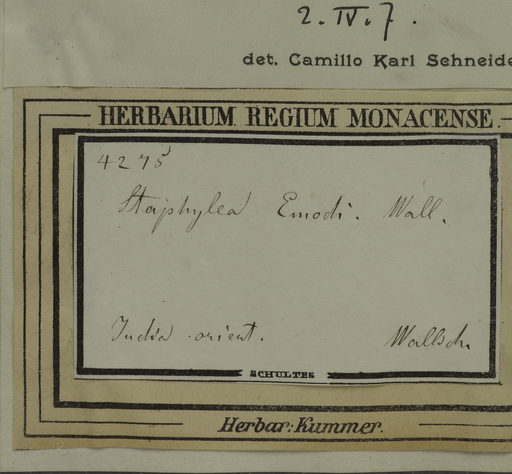 2. IV. 7.
det. Camillo Karl Schneide
HERBARIUM REGIUM MONACENSE.
4275
Staphylea Emodi. Wall.
India orient. Wallich
SCHULTES
Herbar: Kummer.